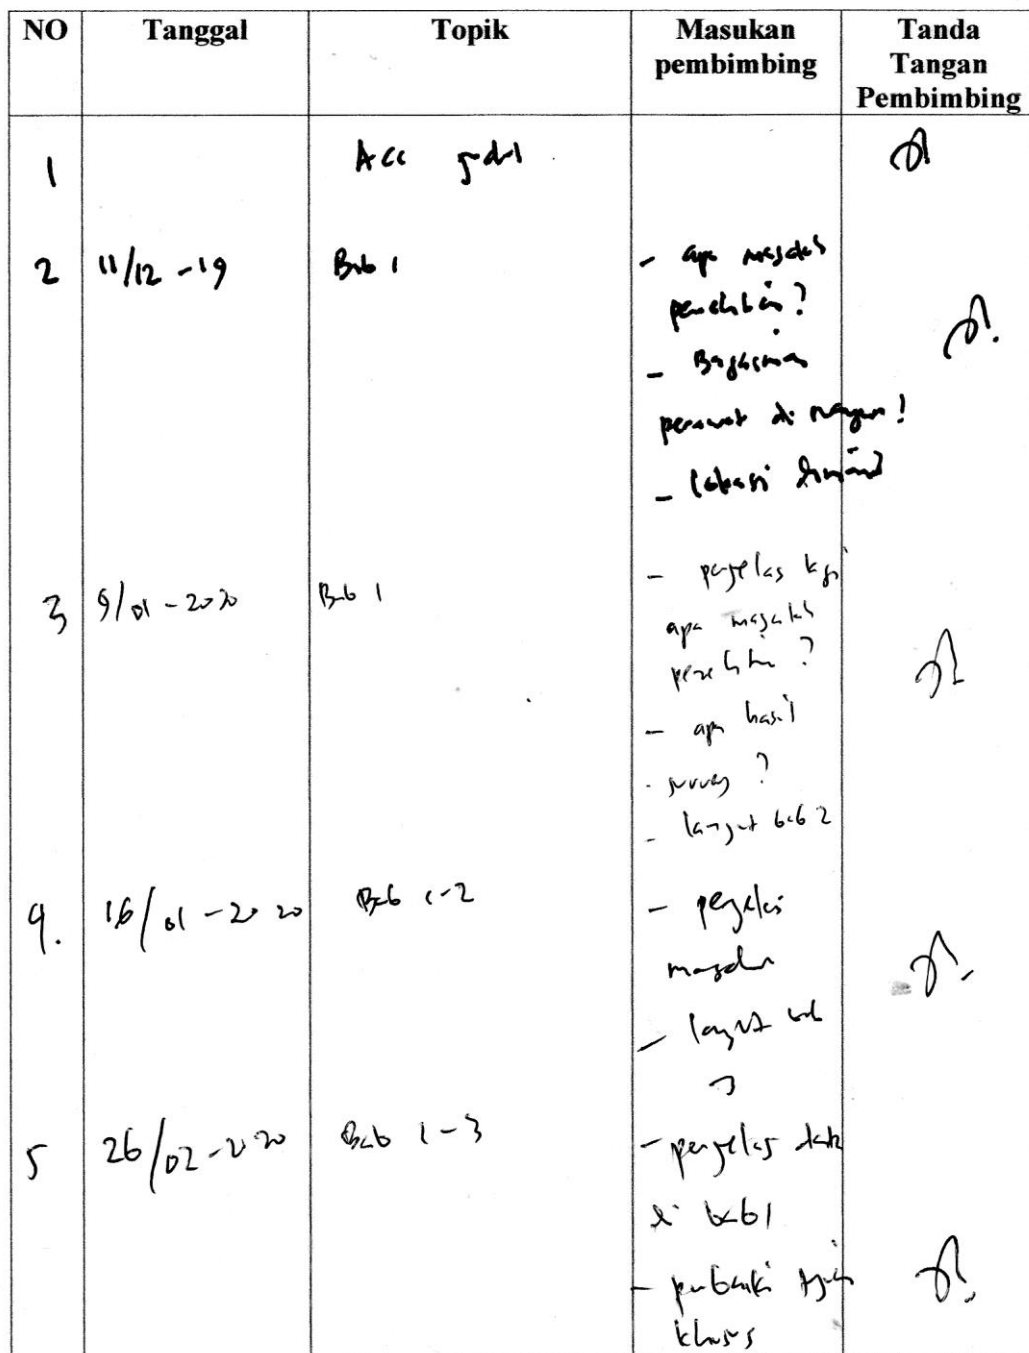 NO Tanggal Topik Masukan pembimbing Tanda Tangan Pembimbing
1 Acc judul
2 11/12 - 19 Bab 1
- apa masalah
penelitian?
- Bagaimana
perawat di
- lokasi dimana?
3 9/01 - 2020 Bab 1
- perjelas lagi
apa masalah
penelitian ?
- apa hasil
survey ?
- lanjut bab 2
4. 16/01 - 2020 Bab 1-2
- perjelas
masalah
- lanjut bab
3
5 26/02 - 2020 Bab 1-3
- perjelas data
di bab 1
- perbaiki tujuan
khusus